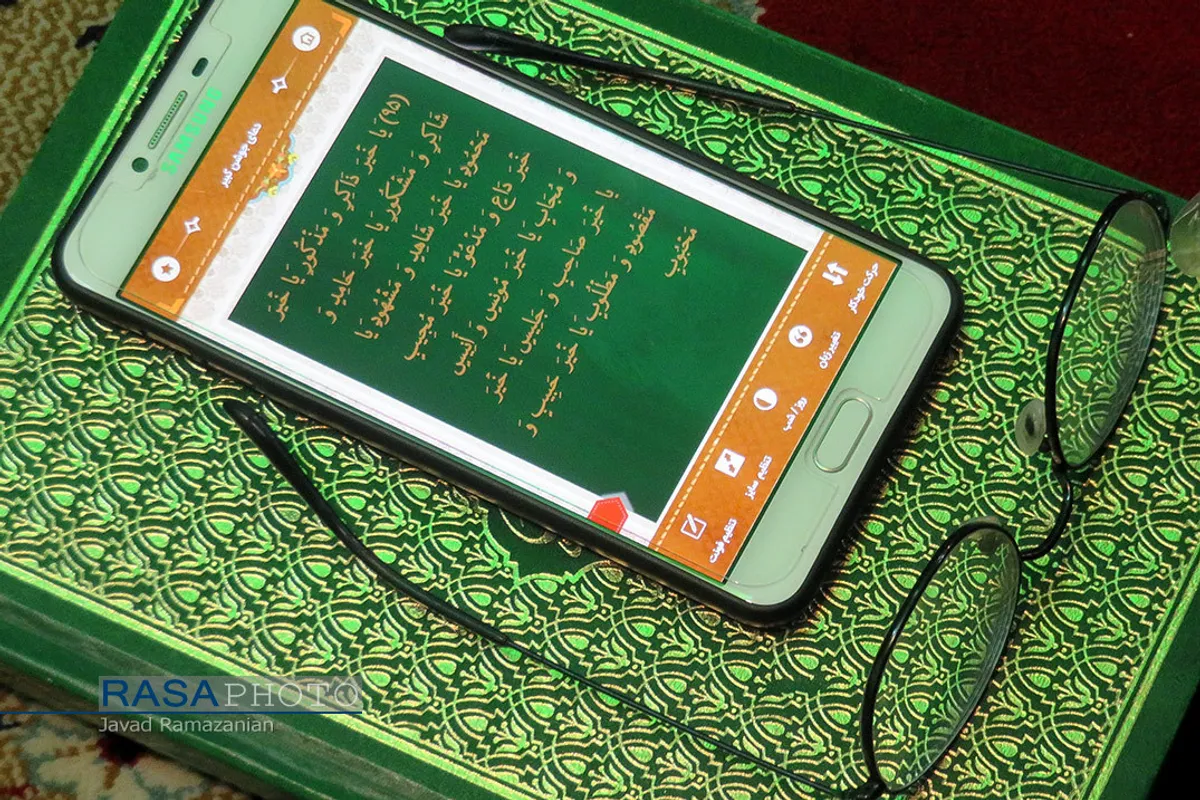 SAMSUNG
دعای جوشن کبیر
(۹۵) یَا خَیْرَ ذَاکِرٍ وَ مَذْکُورٍ یَا خَیْرَ
شَاکِرٍ وَ مَشْکُورٍ یَا خَیْرَ حَامِدٍ وَ
مَحْمُودٍ یَا خَیْرَ شَاهِدٍ وَ مَشْهُودٍ یَا
خَیْرَ دَاعٍ وَ مَدْعُوٍّ یَا خَیْرَ مُجِیبٍ
وَ مُجَابٍ یَا خَیْرَ مُونِسٍ وَ أَنِیسٍ
یَا خَیْرَ صَاحِبٍ وَ جَلِیسٍ یَا خَیْرَ
مَقْصُودٍ وَ مَطْلُوبٍ یَا خَیْرَ حَبِیبٍ وَ
مَحْبُوبٍ
حرکت خودکار
تغییر زبان
روز / شب
تنظیم سایز
تنظیم فونت
RASAPHOTO
Javad Ramazanian